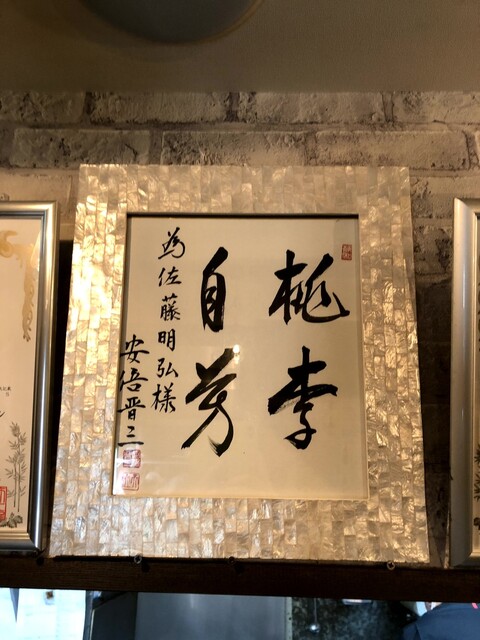 桃李
自芳
為佐藤明弘様
安倍晋三